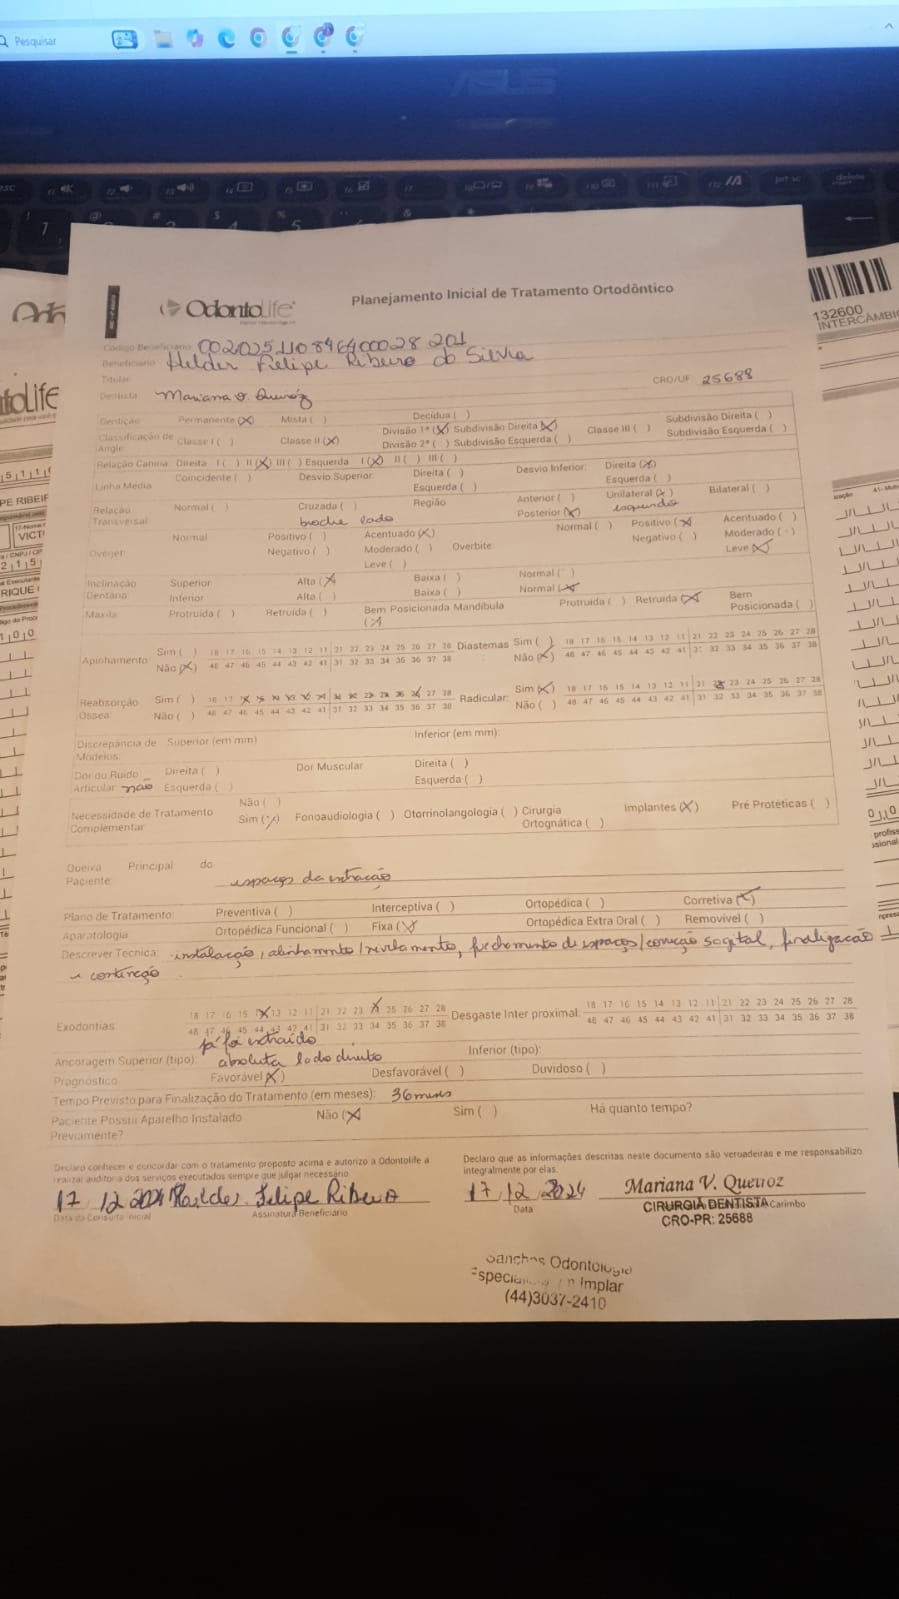 Pesquisar
ASUS
OdontoLife
Planejamento Inicial de Tratamento Ortodôntico
132600
INTERCÂMBI
Código Beneficiário: 00202511084640028 201
Beneficiário: Helder Felipe Ribeiro da Silva
Titular:
Dentista: Mariana V. Queiroz CRO/UF: 25688
Dentição: Permanente (X) Mista ( ) Decídua ( )
Classificação de Angle: Classe I ( ) Classe II (X) Divisão 1ª (X) Subdivisão Direita (X) Classe III ( ) Subdivisão Direita ( )
Divisão 2ª ( ) Subdivisão Esquerda ( ) Subdivisão Esquerda ( )
Relação Canina: Direita I ( ) II (X) III ( ) Esquerda I (X) II ( ) III ( )
Linha Média Coincidente ( ) Desvio Superior: Direita ( ) Desvio Inferior: Direita (X)
Esquerda ( ) Esquerda ( )
Relação Transversal Normal ( ) Cruzada ( ) Região Anterior ( ) Unilateral (X) Bilateral ( )
lado Posterior (X) esquerdo
Overjet: Normal Positivo ( ) Acentuado (X) Overbite: Normal ( ) Positivo (X) Acentuado ( )
Negativo ( ) Moderado ( ) Negativo ( ) Moderado ( )
Leve ( ) Leve (X)
Inclinação Dentária Superior Alta (X) Baixa ( ) Normal ( )
Inferior Alta ( ) Baixa ( ) Normal (X)
Maxila: Protruída ( ) Retruída ( ) Bem Posicionada (X) Mandíbula Protruída ( ) Retruída (X) Bem Posicionada ( )
Apinhamento: Sim ( ) 18 17 16 15 14 13 12 11 21 22 23 24 25 26 27 28 Diastemas Sim ( ) 18 17 16 15 14 13 12 11 21 22 23 24 25 26 27 28
Não (X) 48 47 46 45 44 43 42 41 31 32 33 34 35 36 37 38 Não (X) 48 47 46 45 44 43 42 41 31 32 33 34 35 36 37 38
Reabsorção Óssea Sim ( ) 18 17 X X X X X X X X X X X X 27 28 Radicular: Sim (X) 18 17 16 15 14 13 12 11 21 22 23 24 25 26 27 28
Não ( ) 48 47 46 45 44 43 42 41 31 32 33 34 35 36 37 38 Não ( ) 48 47 46 45 44 43 42 41 31 32 33 34 35 36 37 38
Discrepância de Modelos: Superior (em mm) Inferior (em mm):
Dor ou Ruído Articular: não Direita ( ) Dor Muscular Direita ( )
Esquerda ( ) Esquerda ( )
Necessidade de Tratamento Complementar: Não ( )
Sim (X) Fonoaudiologia ( ) Otorrinolangologia ( ) Cirurgia Ortognática ( ) Implantes (X) Pré Protéticas ( )
Queixa Principal do Paciente: espaços da extração
Plano de Tratamento: Preventiva ( ) Interceptiva ( ) Ortopédica ( ) Corretiva (X)
Aparatologia: Ortopédica Funcional ( ) Fixa (X) Ortopédica Extra Oral ( ) Removível ( )
Descrever Técnica: instalação, alinhamento/nivelamento, fechamento de espaços/correção sagital, finalização
e contenção
Exodontias: 18 17 16 15 X 13 12 11 21 22 23 X 25 26 27 28 Desgaste Inter proximal: 18 17 16 15 14 13 12 11 21 22 23 24 25 26 27 28
48 47 46 45 44 43 42 41 31 32 33 34 35 36 37 38 48 47 46 45 44 43 42 41 31 32 33 34 35 36 37 38
já foi extraído
Ancoragem Superior (tipo): absoluta lado direito Inferior (tipo):
Prognóstico Favorável (X) Desfavorável ( ) Duvidoso ( )
Tempo Previsto para Finalização do Tratamento (em meses): 36 meses
Paciente Possui Aparelho Instalado Previamente? Não (X) Sim ( ) Há quanto tempo?
Declaro conhecer e concordar com o tratamento proposto acima e autorizo a Odontolife a
realizar auditoria dos serviços executados sempre que julgar necessário
Declaro que as informações descritas neste documento são verdadeiras e me responsabilizo
integralmente por elas.
17 12 2024 Helder Felipe Ribeiro
Data da Consulta Inicial Assinatura Beneficiário
17 12 2024
Data
Mariana V. Queiroz
CIRURGIÃ DENTISTA Carimbo
CRO-PR: 25688
Sanches Odontologia
Implar
(44)3037-2410